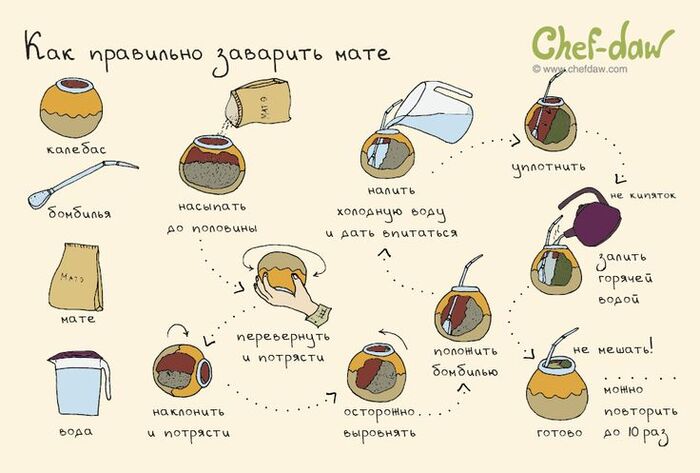 Как правильно заварить мате
Chef-daw
© www.chefdaw.com
калебас
бомбилья
Матэ
мате
вода
МАТЭ
насыпать
до половины
перевернуть
и потрясти
наклонить
и потрясти
осторожно
выровнять
положить
бомбилью
налить
холодную воду
и дать впитаться
уплотнить
не кипяток
залить
горячей
водой
не мешать!
готово
можно
повторить
до 10 раз